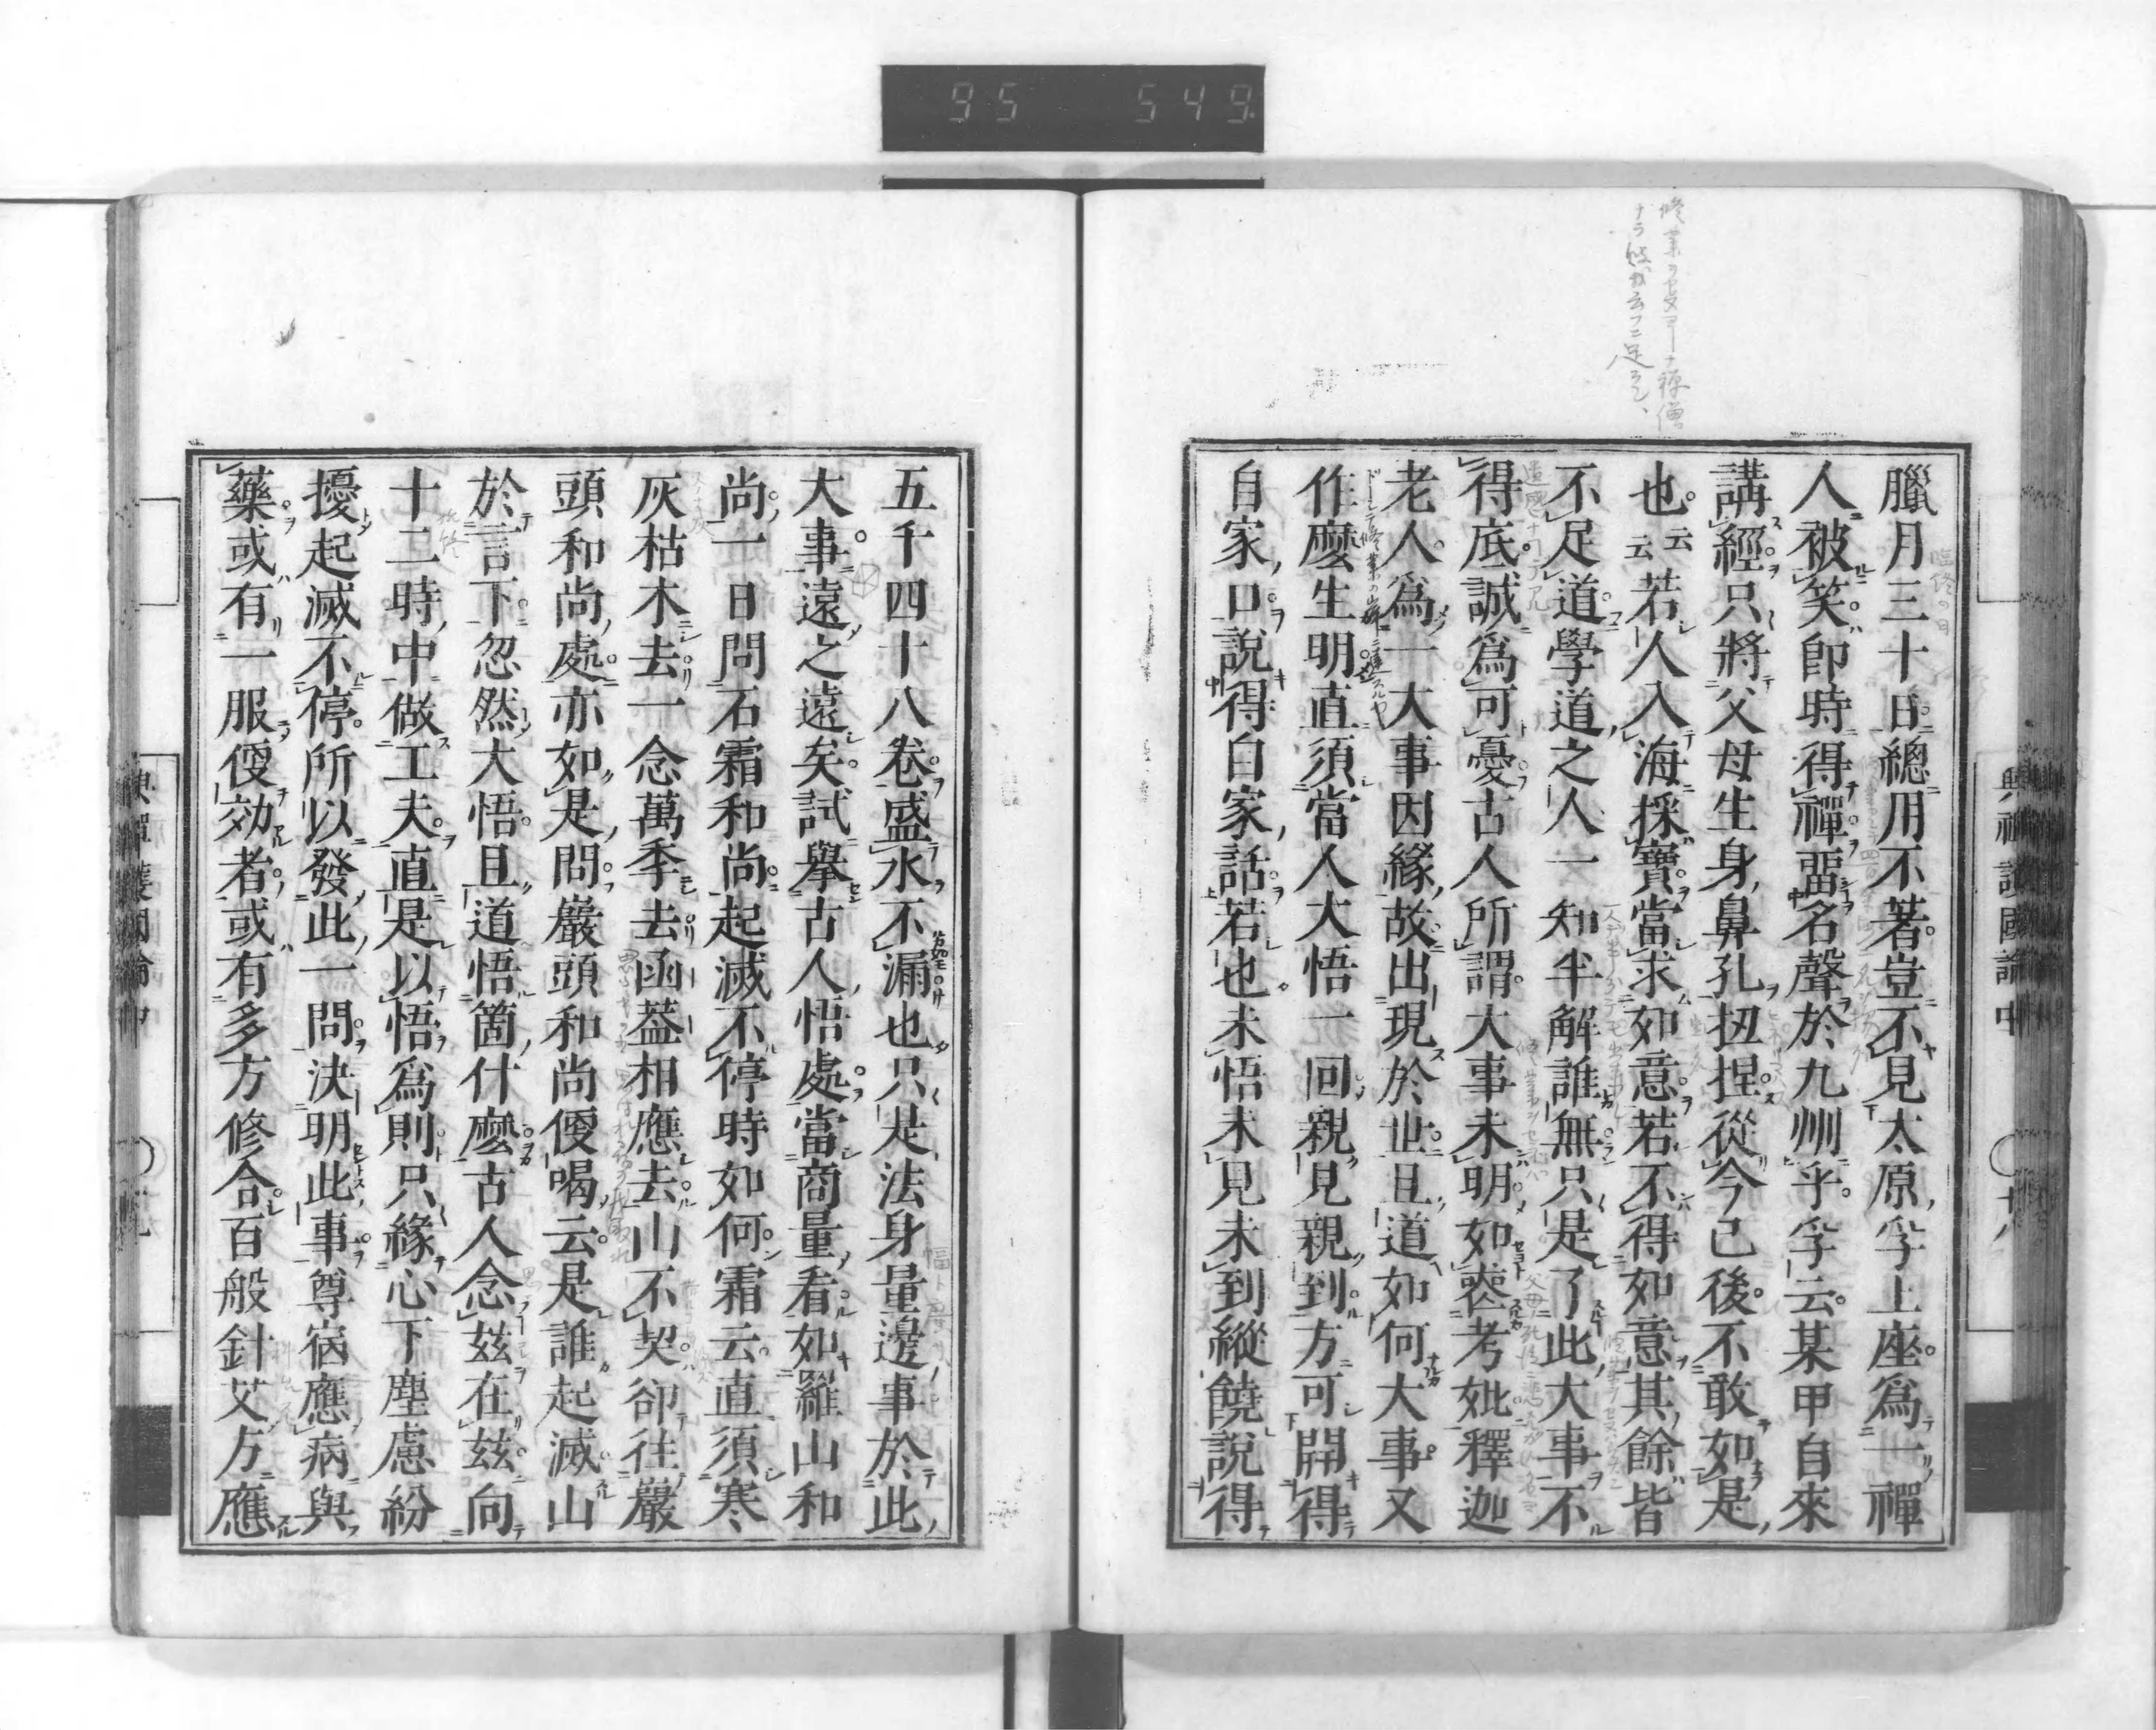 95 549
臘月三十日總用不著豈不見太原孚上座爲一禪
人被笑卽時得禪噐名聲於九州乎孚云某甲自來
講經只將父母生身鼻孔扭捏從今已後不敢如是
也云云若人入海採寶當求如意若不得如意其餘皆
不足道學道之人一知半解誰無只是了此大事不
得底誠爲可憂古人所謂大事未明如喪考妣釋迦
老人爲一大事因緣故出現於世且道如何大事又
作麼生明直須當人大悟一回親見親到方可開得
自家口說得自家話若也未悟未見未到縱饒說得
興禪護國論中
十八
五千四十八卷盛水不漏也只是法身量邊事於此
大事遠之遠矣試擧古人悟處當商量看如羅山和
尚一日問石霜和尚起滅不停時如何霜云直須寒
灰枯木去一念萬季去函葢相應去山不契卻往巖
頭和尚處亦如是問巖頭和尚便喝云是誰起滅山
於言下忽然大悟且道悟箇什麼古人念玆在玆向
十二時中做工夫直是以悟爲則只緣心下塵慮紛
擾起滅不停所以發此一問決明此事尊宿應病與
藥或有一服便効者或有多方修合百般針艾方應